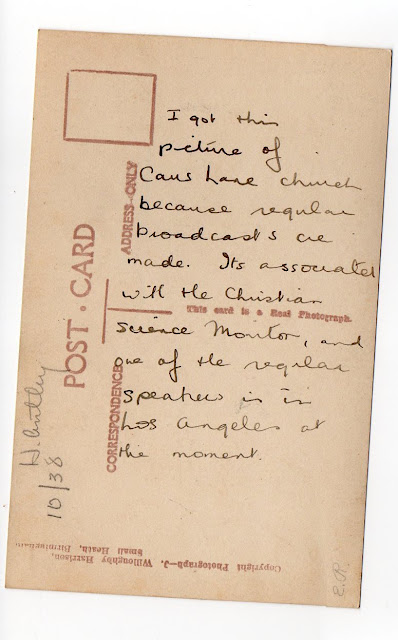 I got this
picture of
Caus Lane church
because regular
broadcasts are
made. Its associated
with the Christian
Science Monitor, and
one of the regular
speakers is in
Los Angeles at
the moment.
POST • CARD
ADDRESS ONLY
CORRESPONDENCE
This card is a Real Photograph.
10/38
Copyright Photograph—J. Willoughby Harrison,
Small Heath, Birmingham.
E.R.